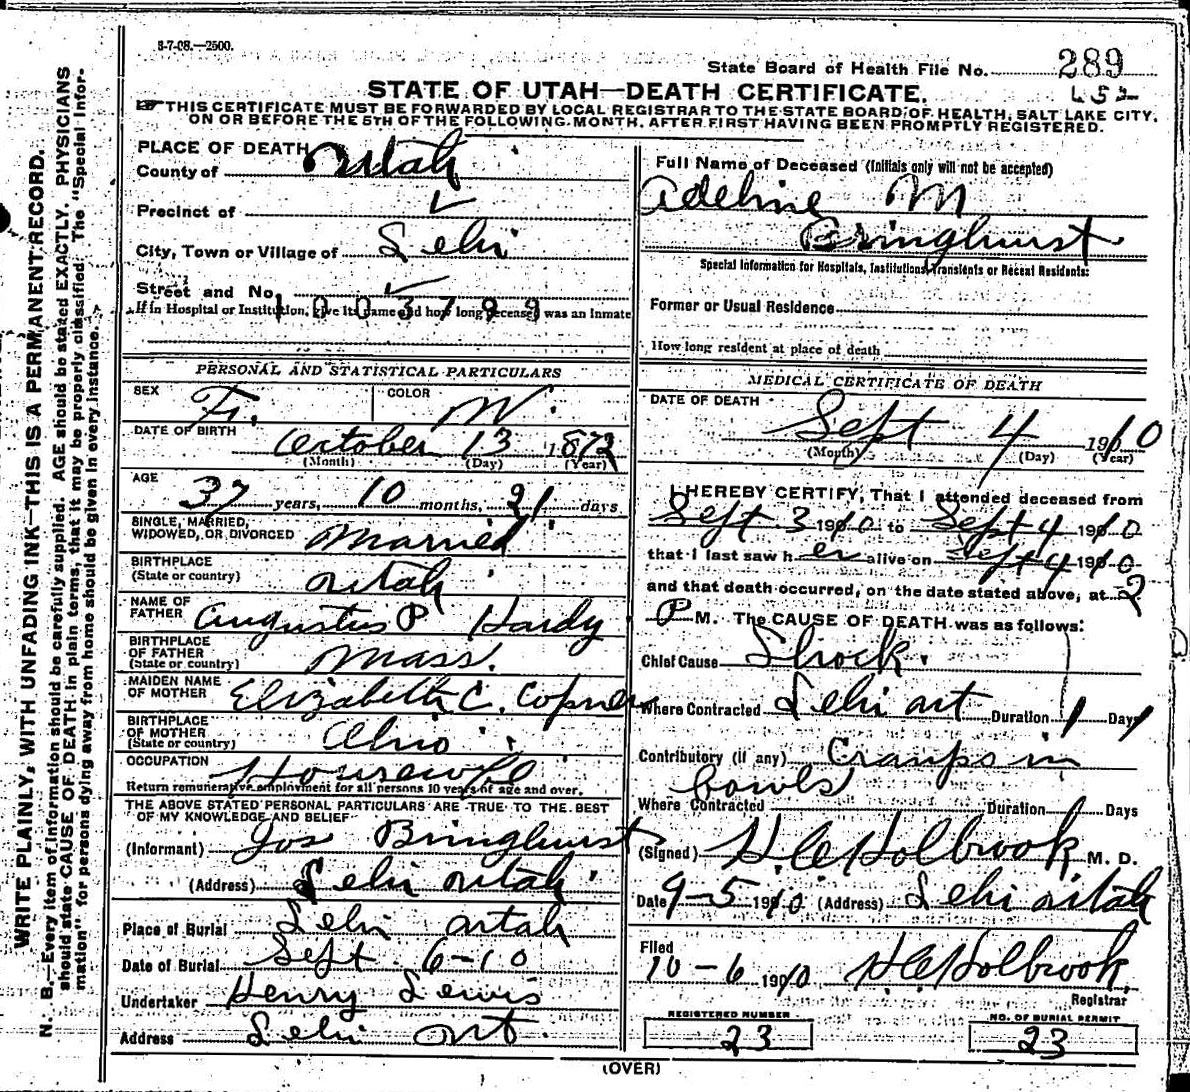 8-7-08.—2500.
State Board of Health File No. 289
STATE OF UTAH—DEATH CERTIFICATE.
THIS CERTIFICATE MUST BE FORWARDED BY LOCAL REGISTRAR TO THE STATE BOARD OF HEALTH, SALT LAKE CITY,
ON OR BEFORE THE 5TH OF THE FOLLOWING MONTH, AFTER FIRST HAVING BEEN PROMPTLY REGISTERED.
WRITE PLAINLY, WITH UNFADING INK—THIS IS A PERMANENT RECORD.
N. B.—Every item of information should be carefully supplied. AGE should be stated EXACTLY. PHYSICIANS
should state CAUSE OF DEATH in plain terms, that it may be properly classified. The "Special Infor-
mation" for persons dying away from home should be given in every instance.
PLACE OF DEATH
County of Utah
Precinct of
City, Town or Village of Lehi
Street and No.
1003799
If in Hospital or Institution, give its name and how long deceased was an Inmate
PERSONAL AND STATISTICAL PARTICULARS
SEX F.
COLOR W.
DATE OF BIRTH October 13 1872
(Month) (Day) (Year)
AGE
37 years, 10 months, 21 days
SINGLE, MARRIED,
WIDOWED, OR DIVORCED Married
BIRTHPLACE
(State or country) Utah
NAME OF
FATHER Augustus P Hardy
BIRTHPLACE
OF FATHER
(State or country) Mass.
MAIDEN NAME
OF MOTHER Elizabeth C.
BIRTHPLACE
OF MOTHER
(State or country) Ohio
OCCUPATION Housewife
Return remunerative employment for all persons 10 years of age and over.
THE ABOVE STATED PERSONAL PARTICULARS ARE TRUE TO THE BEST
OF MY KNOWLEDGE AND BELIEF
(Informant) Jos Bringhurst
(Address) Lehi Utah
Place of Burial Lehi Utah
Date of Burial Sept. 6-10
Undertaker Henry Lewis
Address Lehi Ut.
Full Name of Deceased (Initials only will not be accepted)
Adeline M
Bringhurst
Special Information for Hospitals, Institutions, Transients or Recent Residents:
Former or Usual Residence
How long resident at place of death
MEDICAL CERTIFICATE OF DEATH
DATE OF DEATH
Sept 4 1910
(Month) (Day) (Year)
I HEREBY CERTIFY, That I attended deceased from
Sept 3 1910 to Sept 4 1910
that I last saw her alive on Sept 4 1910
and that death occurred, on the date stated above, at 2
P M. The CAUSE OF DEATH was as follows:
Chief Cause Shock.
Where Contracted Lehi Ut Duration 1 Day
Contributory (if any) Cramps in
bowls
Where Contracted Duration Days
(Signed) H C Holbrook M. D.
Date 9-5 1910 (Address) Lehi Utah
Filed
10-6 1910 H C Holbrook
Registrar
REGISTERED NUMBER
23
NO. OF BURIAL PERMIT
23
(OVER)